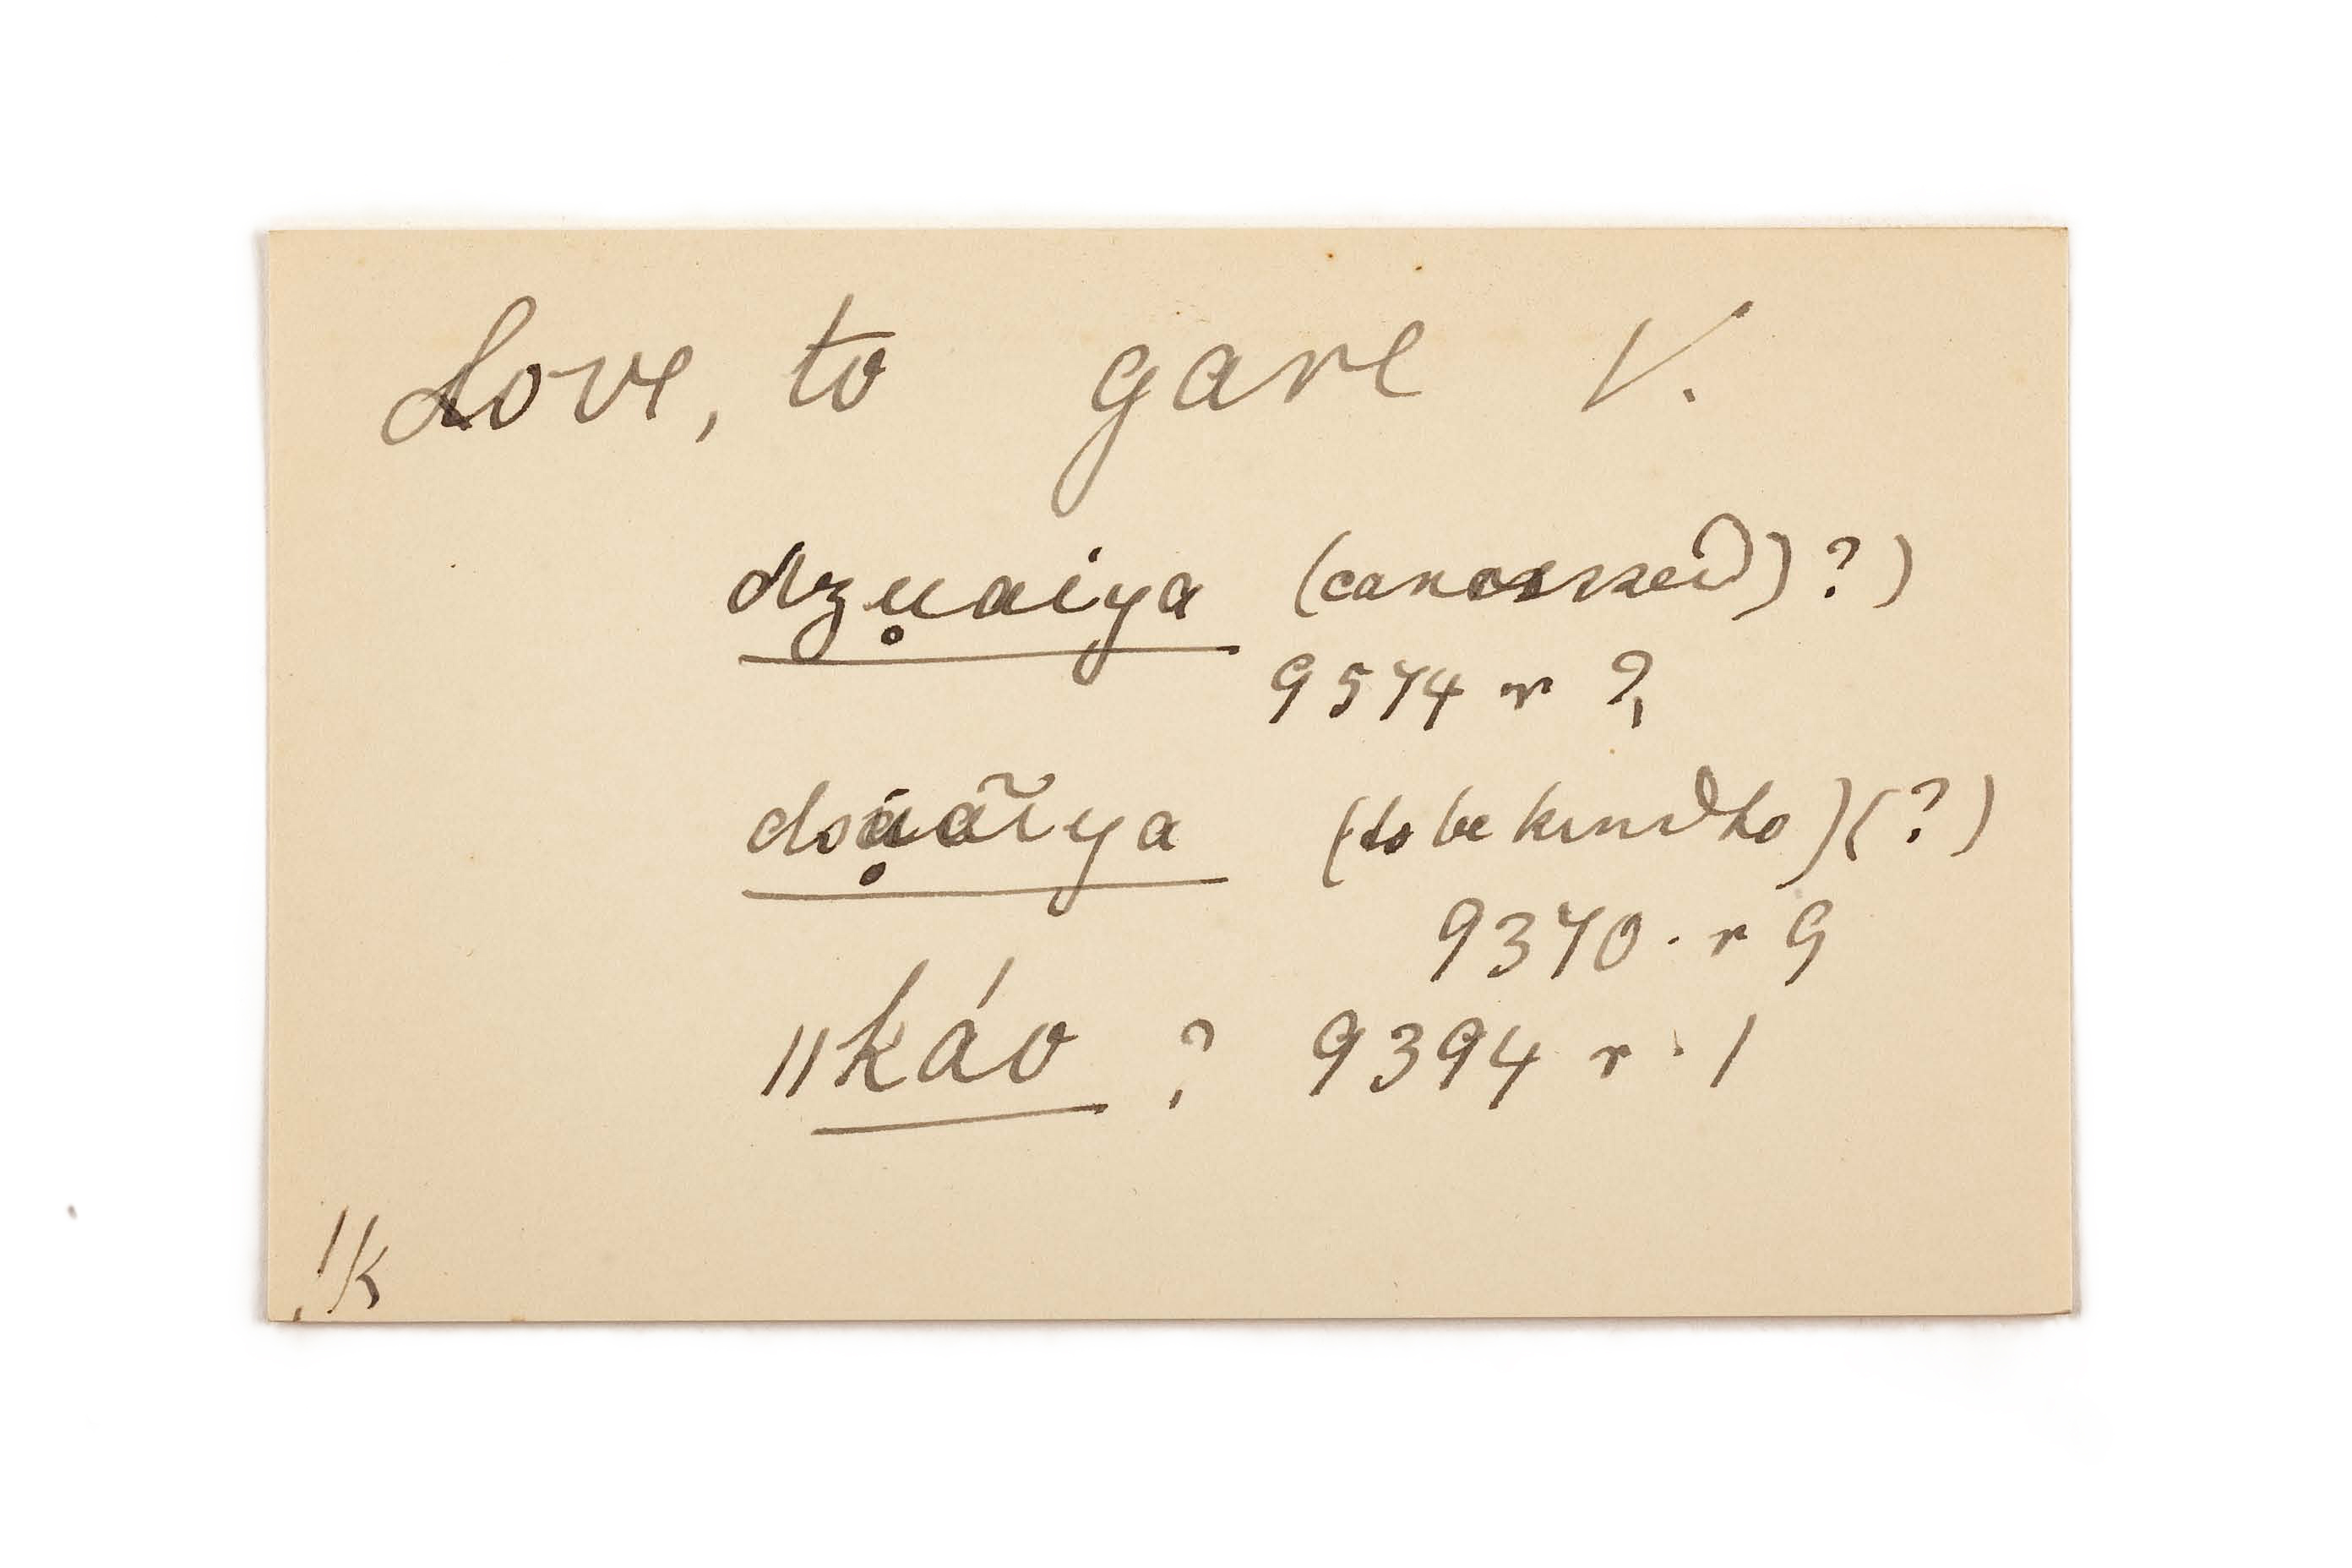 Love, to gave V.
dzu̥aiya (caressed) ?)
9574 r ?,
(to be kind to) (?)
9370. r 9
||káo ? 9394 r. 1
!k